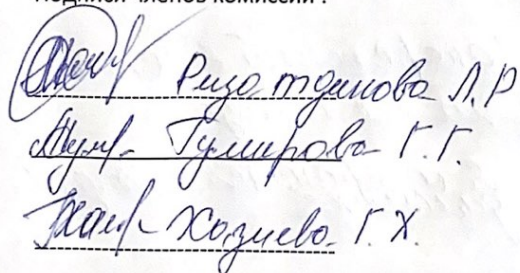 Подписи членов комиссии :
Ризатдинова Л.Р
Гумирова Г.Г.
Хазиева Г.Х.